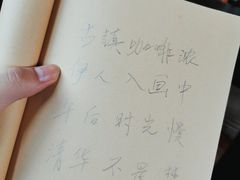 古镇咖啡浓
伊人入画中
午后时光慢
清华不是